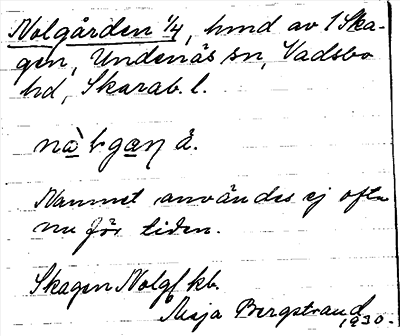 Nolgården 1/4, hmd av 1 Ska-
gen, Undenäs sn, Vadsbo
hd, Skarab. l.
Namnet användes ej ofta
nu för tiden.
Skagen Nolg/ kb.
Maja Bergstrand
1930.